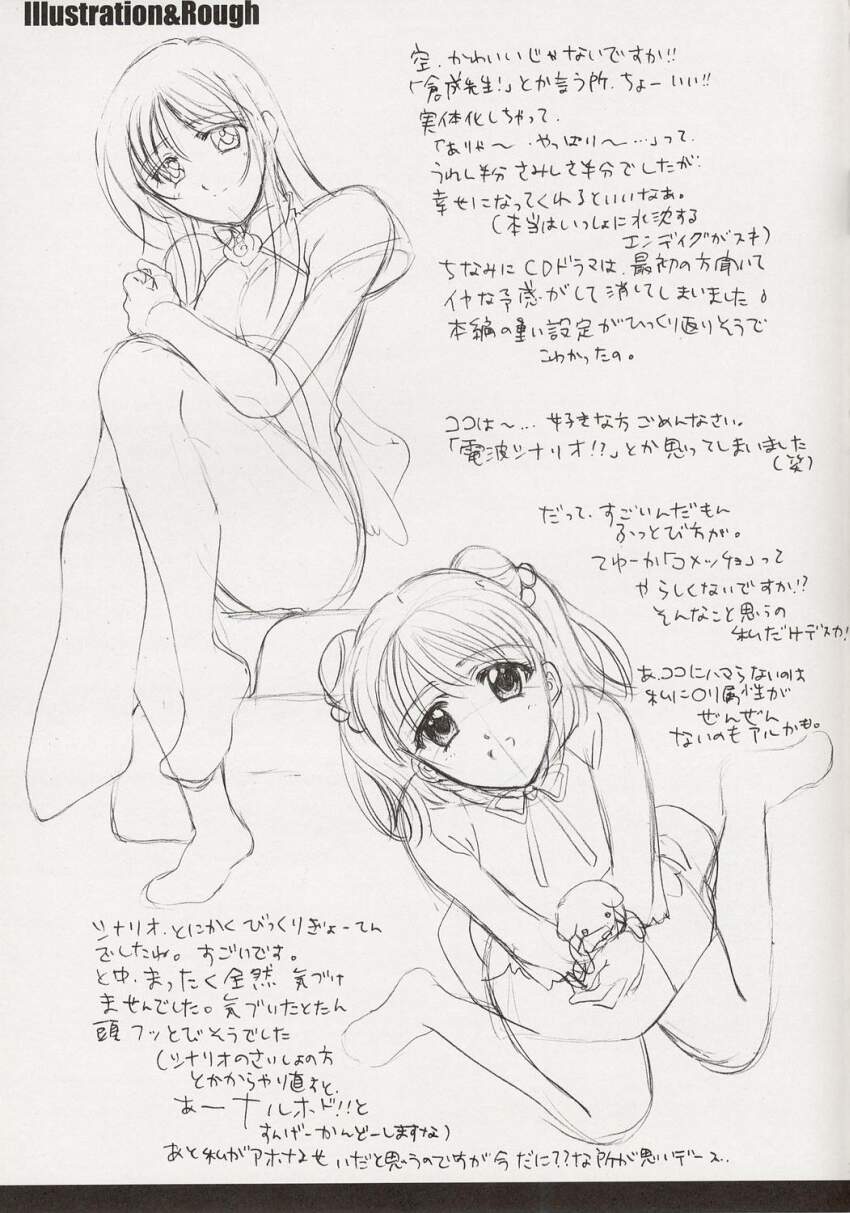 Illustration&Rough
空、かわいいじゃないですか!!
「倉成先生!」とか言う所、ちょーいい!!
実体化しちゃって、
「ありゃ〜、やっぱり〜…」って、
うれし半分さみしさ半分でしたが、
幸せになってくれるといいなぁ。
(本当はいっしょに水沈する
エンディグがスキ)
ちなみにCDドラマは、最初の方聞いて
イヤな予感がして消してしまいました。
本編の重い設定がひっくり返りそうで
こわかったの。
ココは〜…好きな方ごめんなさい。
「電波シナリオ!?」とか思ってしまいました
(笑)
だって、すごいんだもん
ふっとび方が。
てゆーか「コメッチョ」って
やらしくないですか!?
そんなこと思うの
私だけデスカ!
あ、ココにハマらないのは
私にロリ属性が
ぜんぜん
ないのもアルかも。
シナリオ、とにかくびっくりぎょーてん
でしたね。すごいです。
と中、まったく全然気づけ
ませんでした。気づいたとたん
頭フッとびそうでした
(シナリオのさいしょの方
とかからやり直すと、
あーナルホド!!と
すんげーかんどーしますな)
あと私がアホな
いだと思うのですが今だに??な所が
デース..